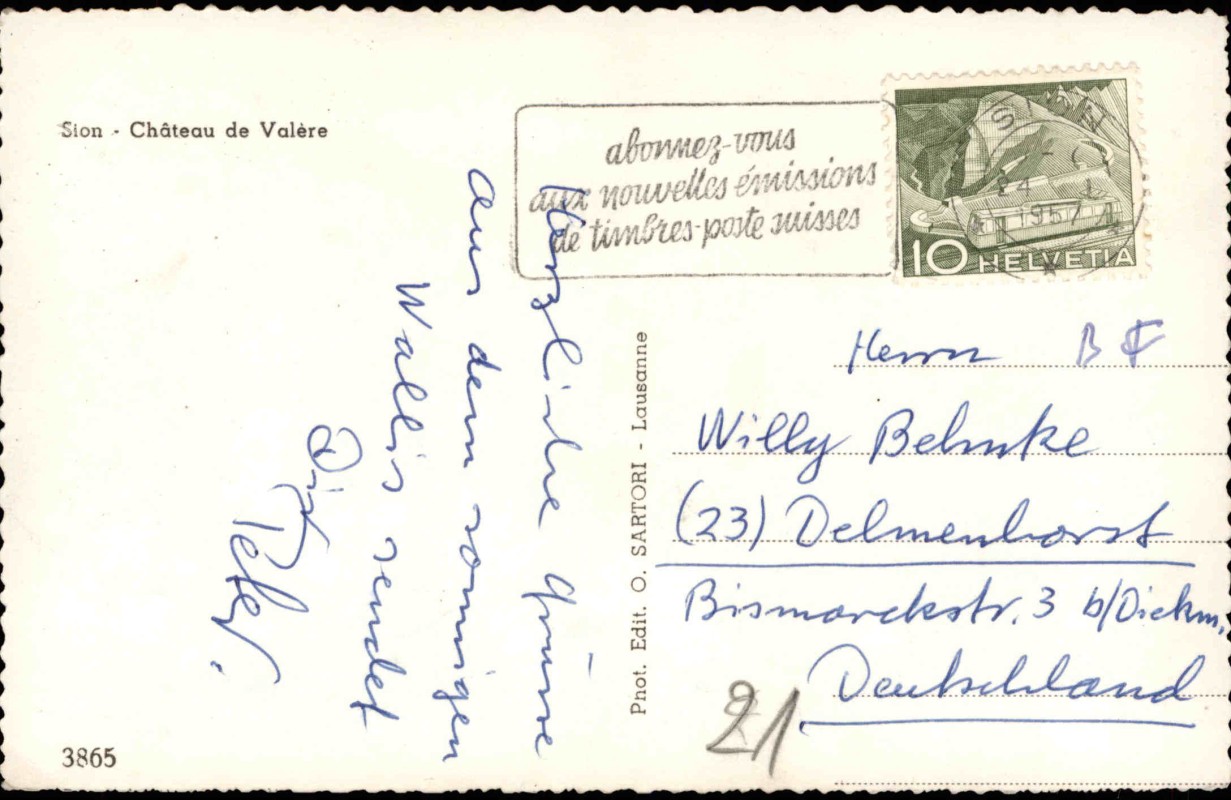 Sion - Château de Valère
abonnez-vous
aux nouvelles émissions
de timbres-poste suisses
SION
1957
10 HELVETIA
Herzliche Grüsse
aus dem sonnigen
Wallis sendet
Dir
Peter.
Phot. Edit. O. SARTORI - Lausanne
Herrn
Willy Behnke
(23) Delmenhorst
Bismarckstr. 3 b/Diekm.
Deutschland
21
3865